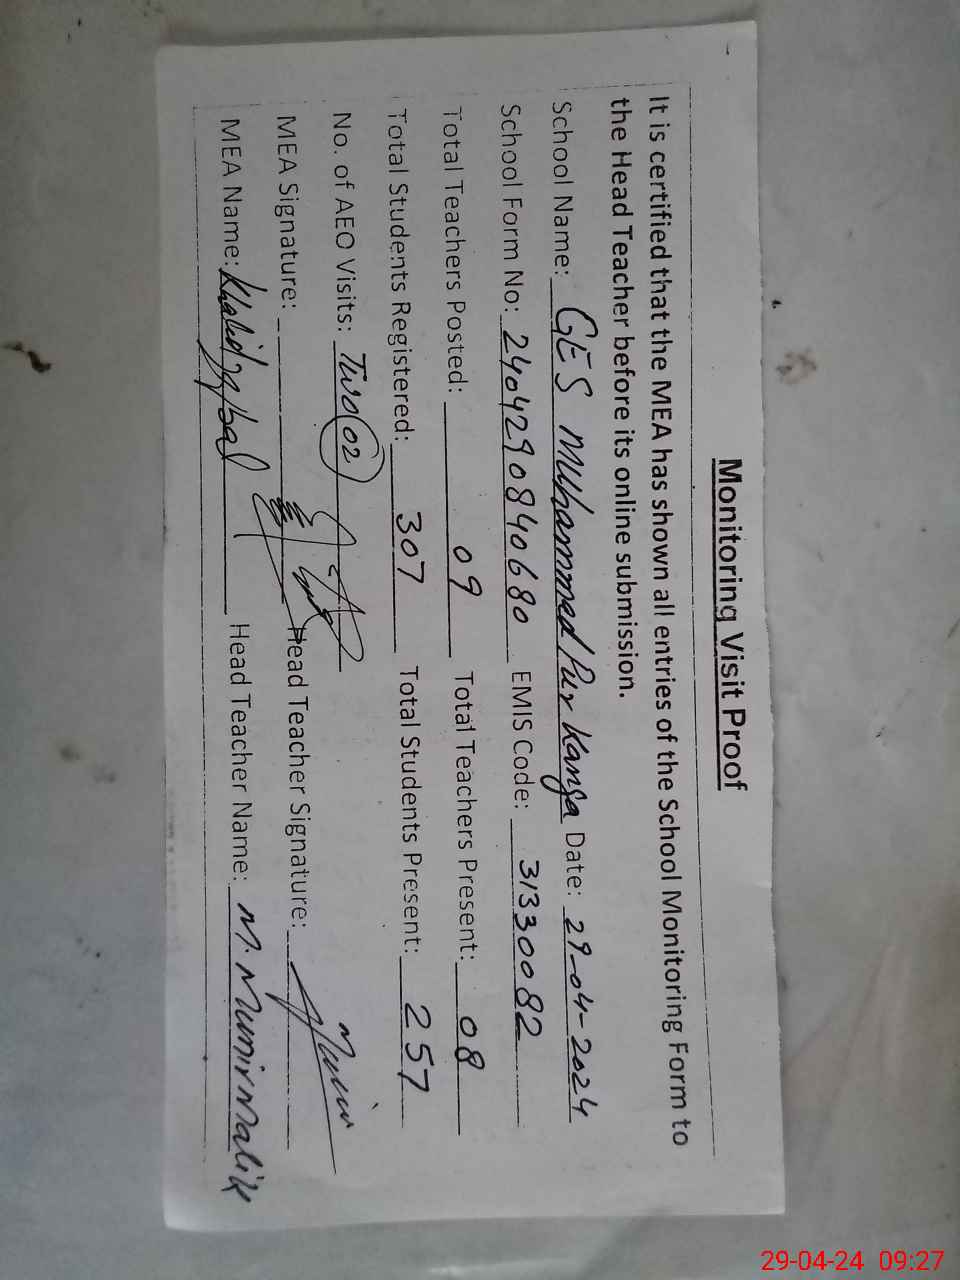 Monitoring Visit Proof
It is certified that the MEA has shown all entries of the School Monitoring Form to
the Head Teacher before its online submission.
School Name: GES Muhammad Pur Kanga Date: 29-04-2024
School Form No: 2404290840680 EMIS Code: 31330082
Total Teachers Posted: 09 Total Teachers Present: 08
Total Students Registered: 307 Total Students Present: 257
No. of AEO Visits: Two 02
MEA Signature: Head Teacher Signature:
MEA Name: Khalid Iqbal Head Teacher Name: M. Munir Malik
29-04-24 09:27